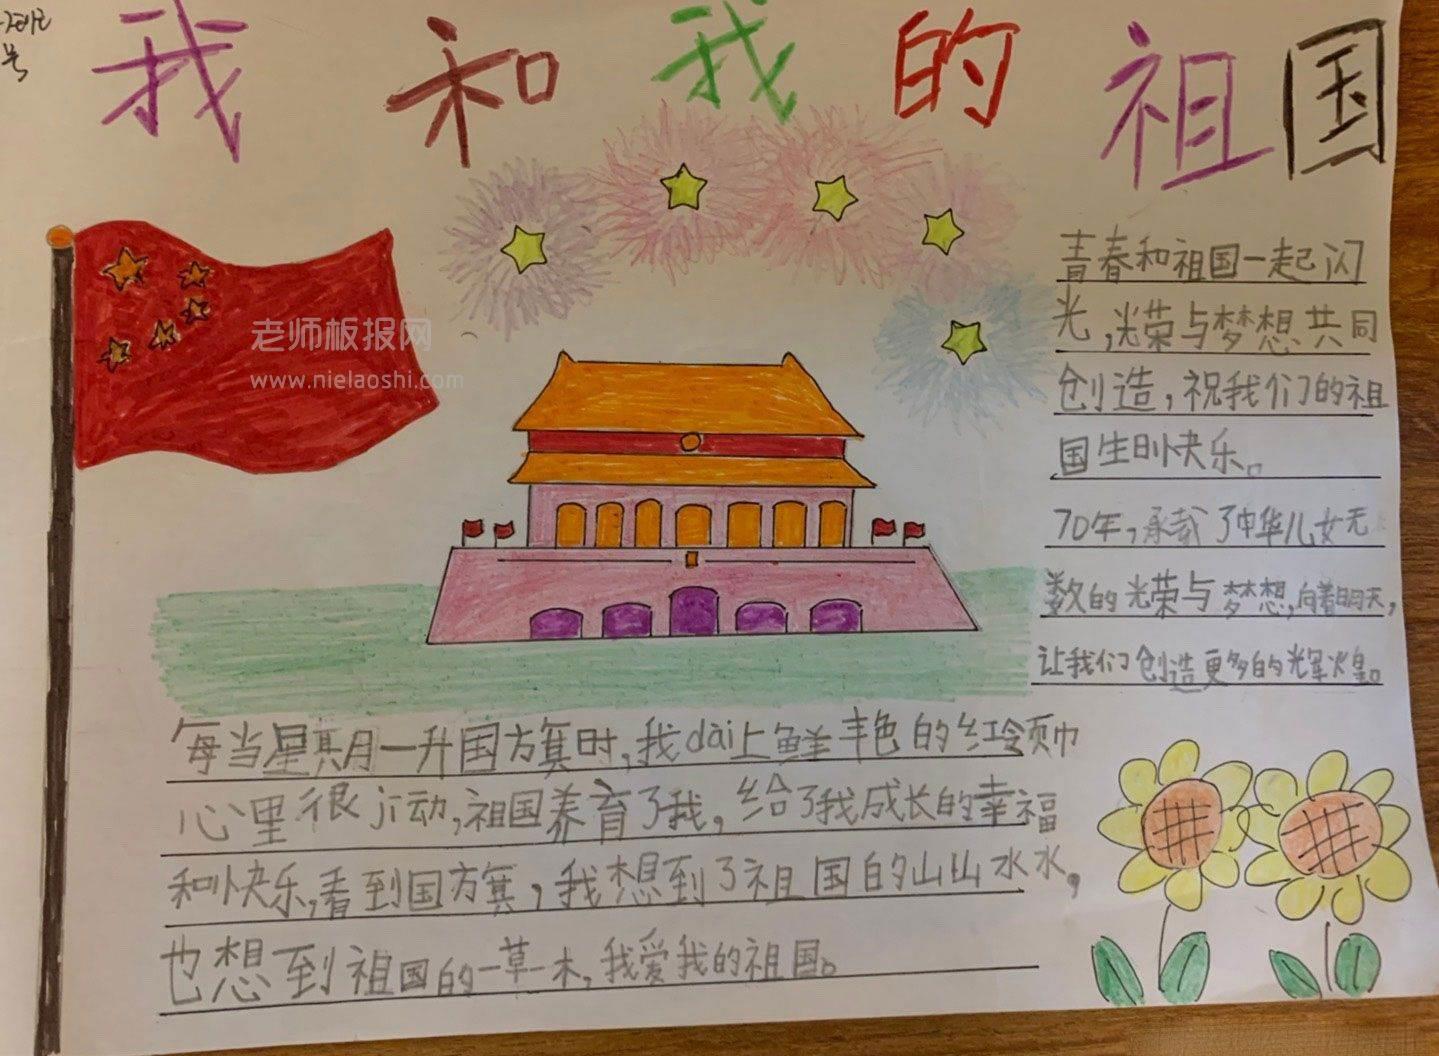 我和我的祖国
号
老师板报网
www.nielaoshi.com
青春和祖国一起闪
光,光荣与梦想共同
创造,祝我们的祖
国生日快乐。
70年,承载了中华儿女无
数的光荣与梦想,向着明天,
让我们创造更多的辉煌。
每当星期一升国旗时,我dài上鲜丰色的红领巾
心里很jī动,祖国养育了我,给了我成长的幸福
和快乐,看到国旗,我想到了祖国的山山水水,
也想到祖国的一草一木,我爱我的祖国。